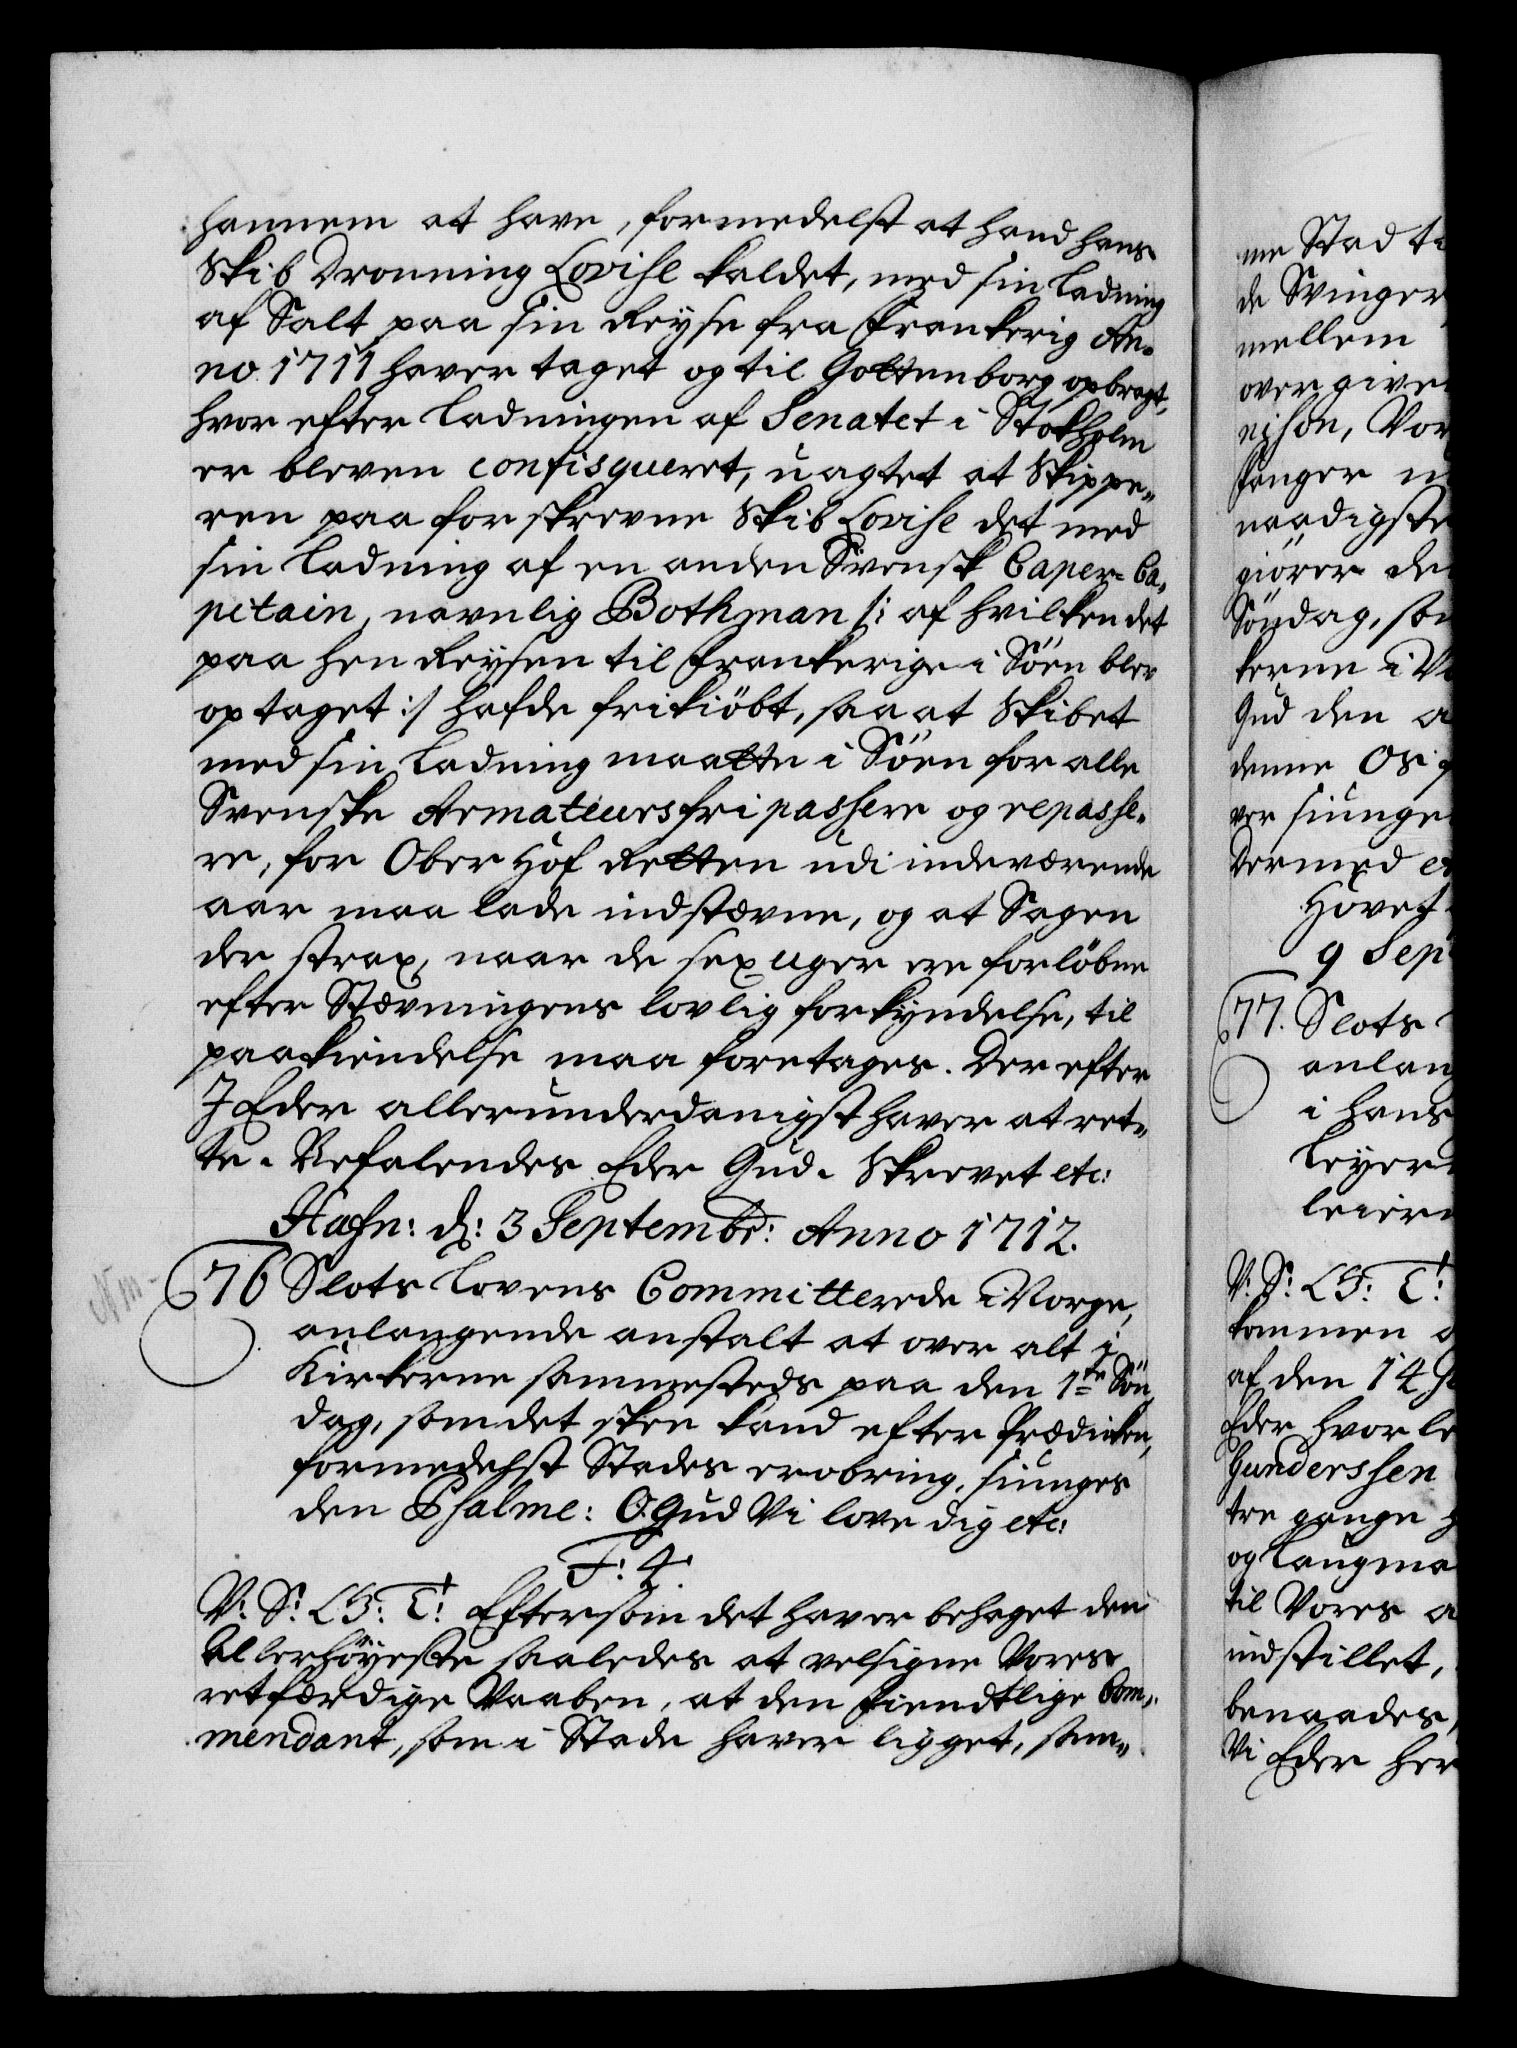 hannem at have, formedelst at hand hans
Skib Dronning Lovise kaldet, med sin Ladning
af Salt paa sin Reyse fra Frankerig An¬
no 1711 haver taget og til Gottenborg opbragt,
hvor efter Ladningen af Senatet i Stokholm
er bleven confisqueret, uagtet at Skippe¬
ren paa forskrevne Skib Lovise det med
sin Ladning af en anden Svensk Caper-Ca¬
pitain, navnlig Bothman /: af hvilken det
paa hen Reysen til Frankerige i Söen blev
optaget :/ hafde frikiöbt, saa at Skibet
med sin Ladning maatte i Söen for alle
Svenske Armateurs fri passere og repasse¬
re, for Ober Hof Retten udi indeværende
aar maa lade indstævne, og at Sagen
der strax, naar de sex uger ere forlöbne
efter Stævningens lovlig forkyndelse, til
paakiendelse maa foretages. Der efter
I Eder allerunderdanigst haver at ret¬
te. Befalendes Eder Gud. Skrevet etc:
Hafn: d: 3 Septembr: Anno 1712.
76 Slots Lovens Committerede i Norge,
anlangende anstalt at over alt i
Kirkerne sammesteds paa den 1te Sön¬
dag, som det skee kand efter Prædicken,
formedelst Stades erobring, siunges
den Psalme: O Gud Vi love dig etc:
F: 4.
V: S: G: T: Eftersom det haver behaget den
Allerhöyeste saaledes at velsigne Vores
retfærdige Vaaben, at den fiendtlige Com¬
mendant, som i Stade haver ligget, sam¬
me Stad
de Svinger
mellem
over give
nison, Vor
fanger
naadigste
giörer de
Söndag, som
kerne i
Gud den
denne Os
ver siunge
Dermed
Hovet
9 Sep
77. Slots
anlang
i hans
Leyer
leier
V: S: G: T:
kommen
af den 14
Eder hvorle
Gunderssen
tre gange
og Laugma
til Vores
indstillet,
benaades,
Vi Eder her